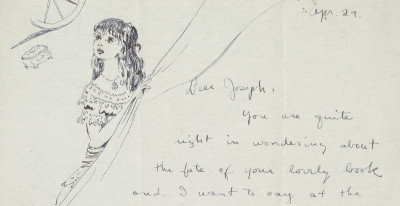 Apr. 29.
Dear Joseph,
You are quite
right in wondering about
the fate of your lovely book
and I want to say at the